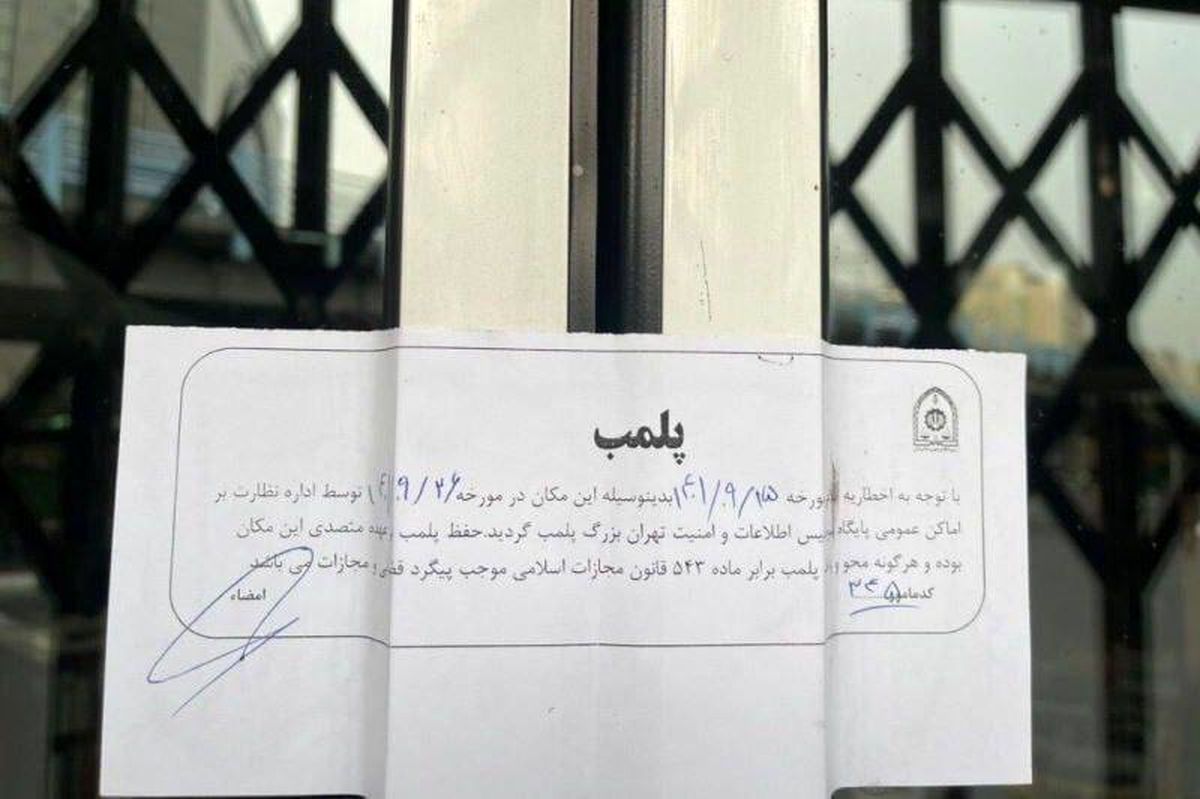 پلمب
با توجه به اخطاریه مورخه ۱۴۰۱/۰۹/۱۵ بدینوسیله این مکان در مورخه ۱۴۰۱/۰۹/۲۶ توسط اداره نظارت بر
اماکن عمومی پایگاه پلیس اطلاعات و امنیت تهران بزرگ پلمب گردید.حفظ پلمب بعهده متصدی این مکان
بوده و هرگونه محو و پلمب برابر ماده ۵۴۳ قانون مجازات اسلامی موجب پیگرد و مجازات می باشد
کدمامور
امضاء